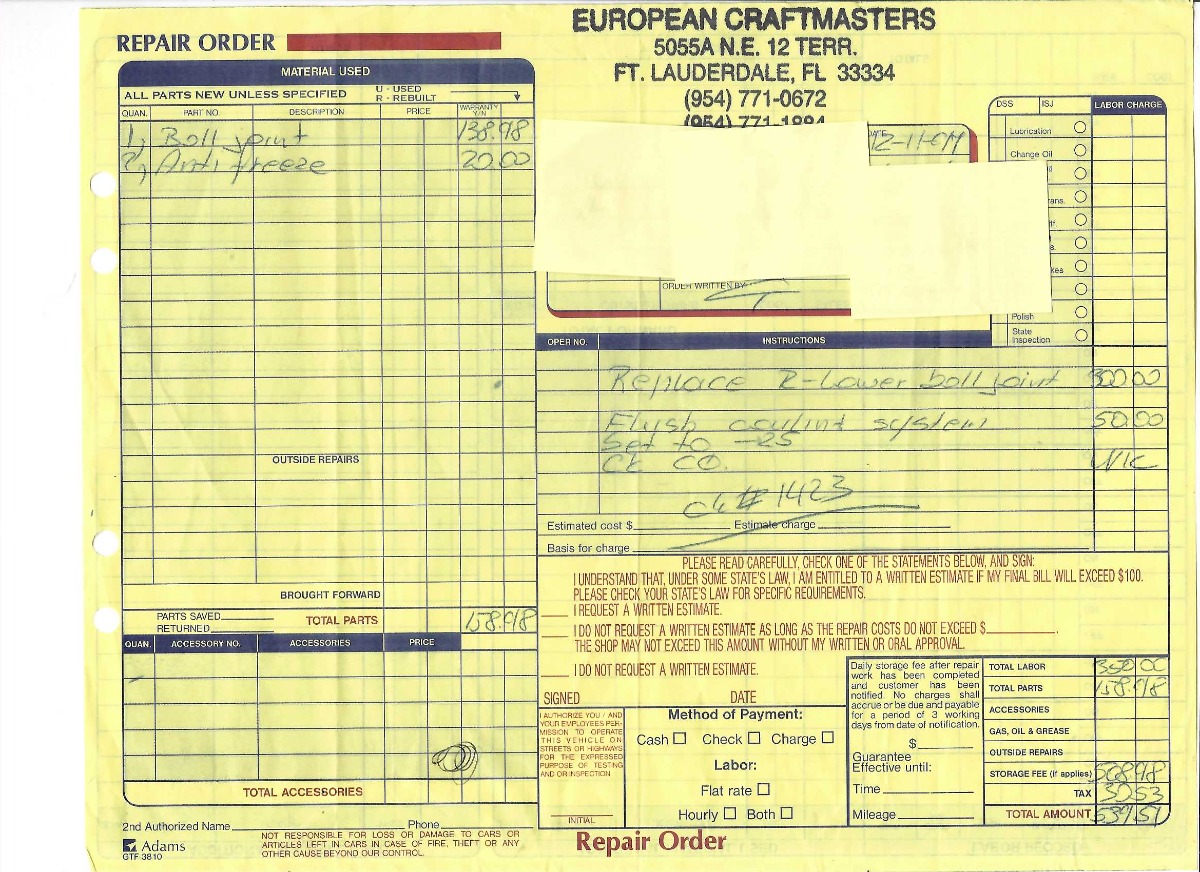 EUROPEAN CRAFTMASTERS
5055A N.E. 12 TERR.
FT. LAUDERDALE, FL 33334
(954) 771-0672
(954) 771-1884
REPAIR ORDER
MATERIAL USED
ALL PARTS NEW UNLESS SPECIFIED
U - USED
R - REBUILT
QUAN. PART NO. DESCRIPTION PRICE WARRANTY Y/N
1, Boll joint 138.98
2, Anti freeze 20.00
OUTSIDE REPAIRS
BROUGHT FORWARD
PARTS SAVED
RETURNED
TOTAL PARTS 158.98
QUAN. ACCESSORY NO. ACCESSORIES PRICE
TOTAL ACCESSORIES
2nd Authorized Name Phone
Adams
GTF 3810
NOT RESPONSIBLE FOR LOSS OR DAMAGE TO CARS OR
ARTICLES LEFT IN CARS IN CASE OF FIRE, THEFT OR ANY
OTHER CAUSE BEYOND OUR CONTROL.
DATE
ORDER WRITTEN BY
DSS ISJ LABOR CHARGE
Lubrication
Change Oil
Polish
State
Inspection
OPER NO. INSTRUCTIONS
Replace R-Lower boll joint 300.00
Flush coulint system 50.00
Set to -25
Ck CO. N/C
ck# 1423
Estimated cost $ Estimate charge
Basis for charge
PLEASE READ CAREFULLY, CHECK ONE OF THE STATEMENTS BELOW, AND SIGN:
I UNDERSTAND THAT, UNDER SOME STATE'S LAW, I AM ENTITLED TO A WRITTEN ESTIMATE IF MY FINAL BILL WILL EXCEED $100.
PLEASE CHECK YOUR STATE'S LAW FOR SPECIFIC REQUIREMENTS.
I REQUEST A WRITTEN ESTIMATE.
I DO NOT REQUEST A WRITTEN ESTIMATE AS LONG AS THE REPAIR COSTS DO NOT EXCEED $
THE SHOP MAY NOT EXCEED THIS AMOUNT WITHOUT MY WRITTEN OR ORAL APPROVAL.
I DO NOT REQUEST A WRITTEN ESTIMATE.
SIGNED DATE
I AUTHORIZE YOU / AND
YOUR EMPLOYEES PER-
MISSION TO OPERATE
THIS VEHICLE ON
STREETS OR HIGHWAYS
FOR THE EXPRESSED
PURPOSE OF TESTING
AND OR INSPECTION
INITIAL
Method of Payment:
Cash Check Charge
Labor:
Flat rate
Hourly Both
Daily storage fee after repair
work has been completed
and customer has been
notified. No charges shall
accrue or be due and payable
for a period of 3 working
days from date of notification.
$
Guarantee
Effective until:
Time
Mileage
TOTAL LABOR 350.00
TOTAL PARTS 158.98
ACCESSORIES
GAS, OIL & GREASE
OUTSIDE REPAIRS
STORAGE FEE (if applies) 508.98
TAX 30.53
TOTAL AMOUNT 539.51
Repair Order